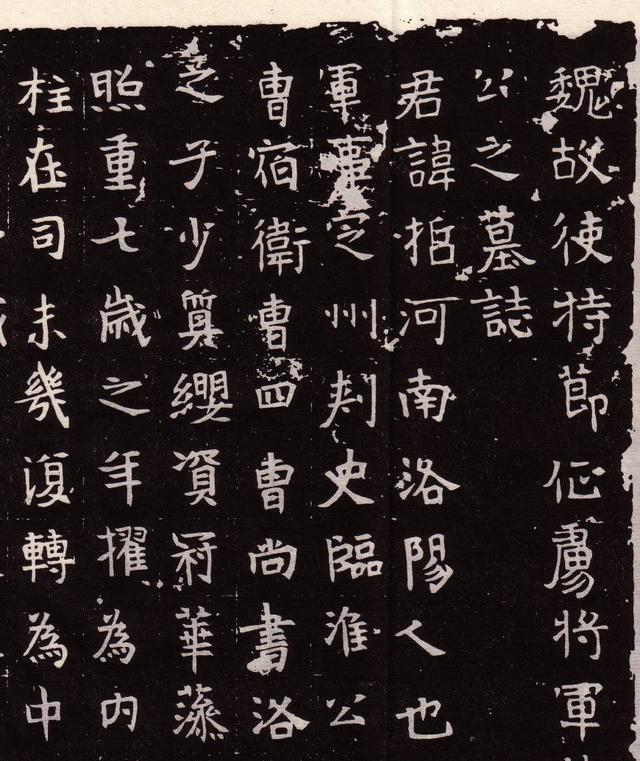 魏故使持節征虜將軍
公之墓誌
君諱河南洛陽人也
軍事定州刾史臨淮公
曺宿衛曺四曺尚書洛
之子少纓資冠華
照重七歲之年擢為内
柱在司未幾復轉為中